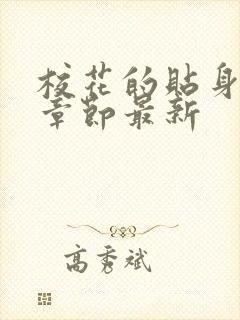 校花的貼身
章節最新
高秀斌